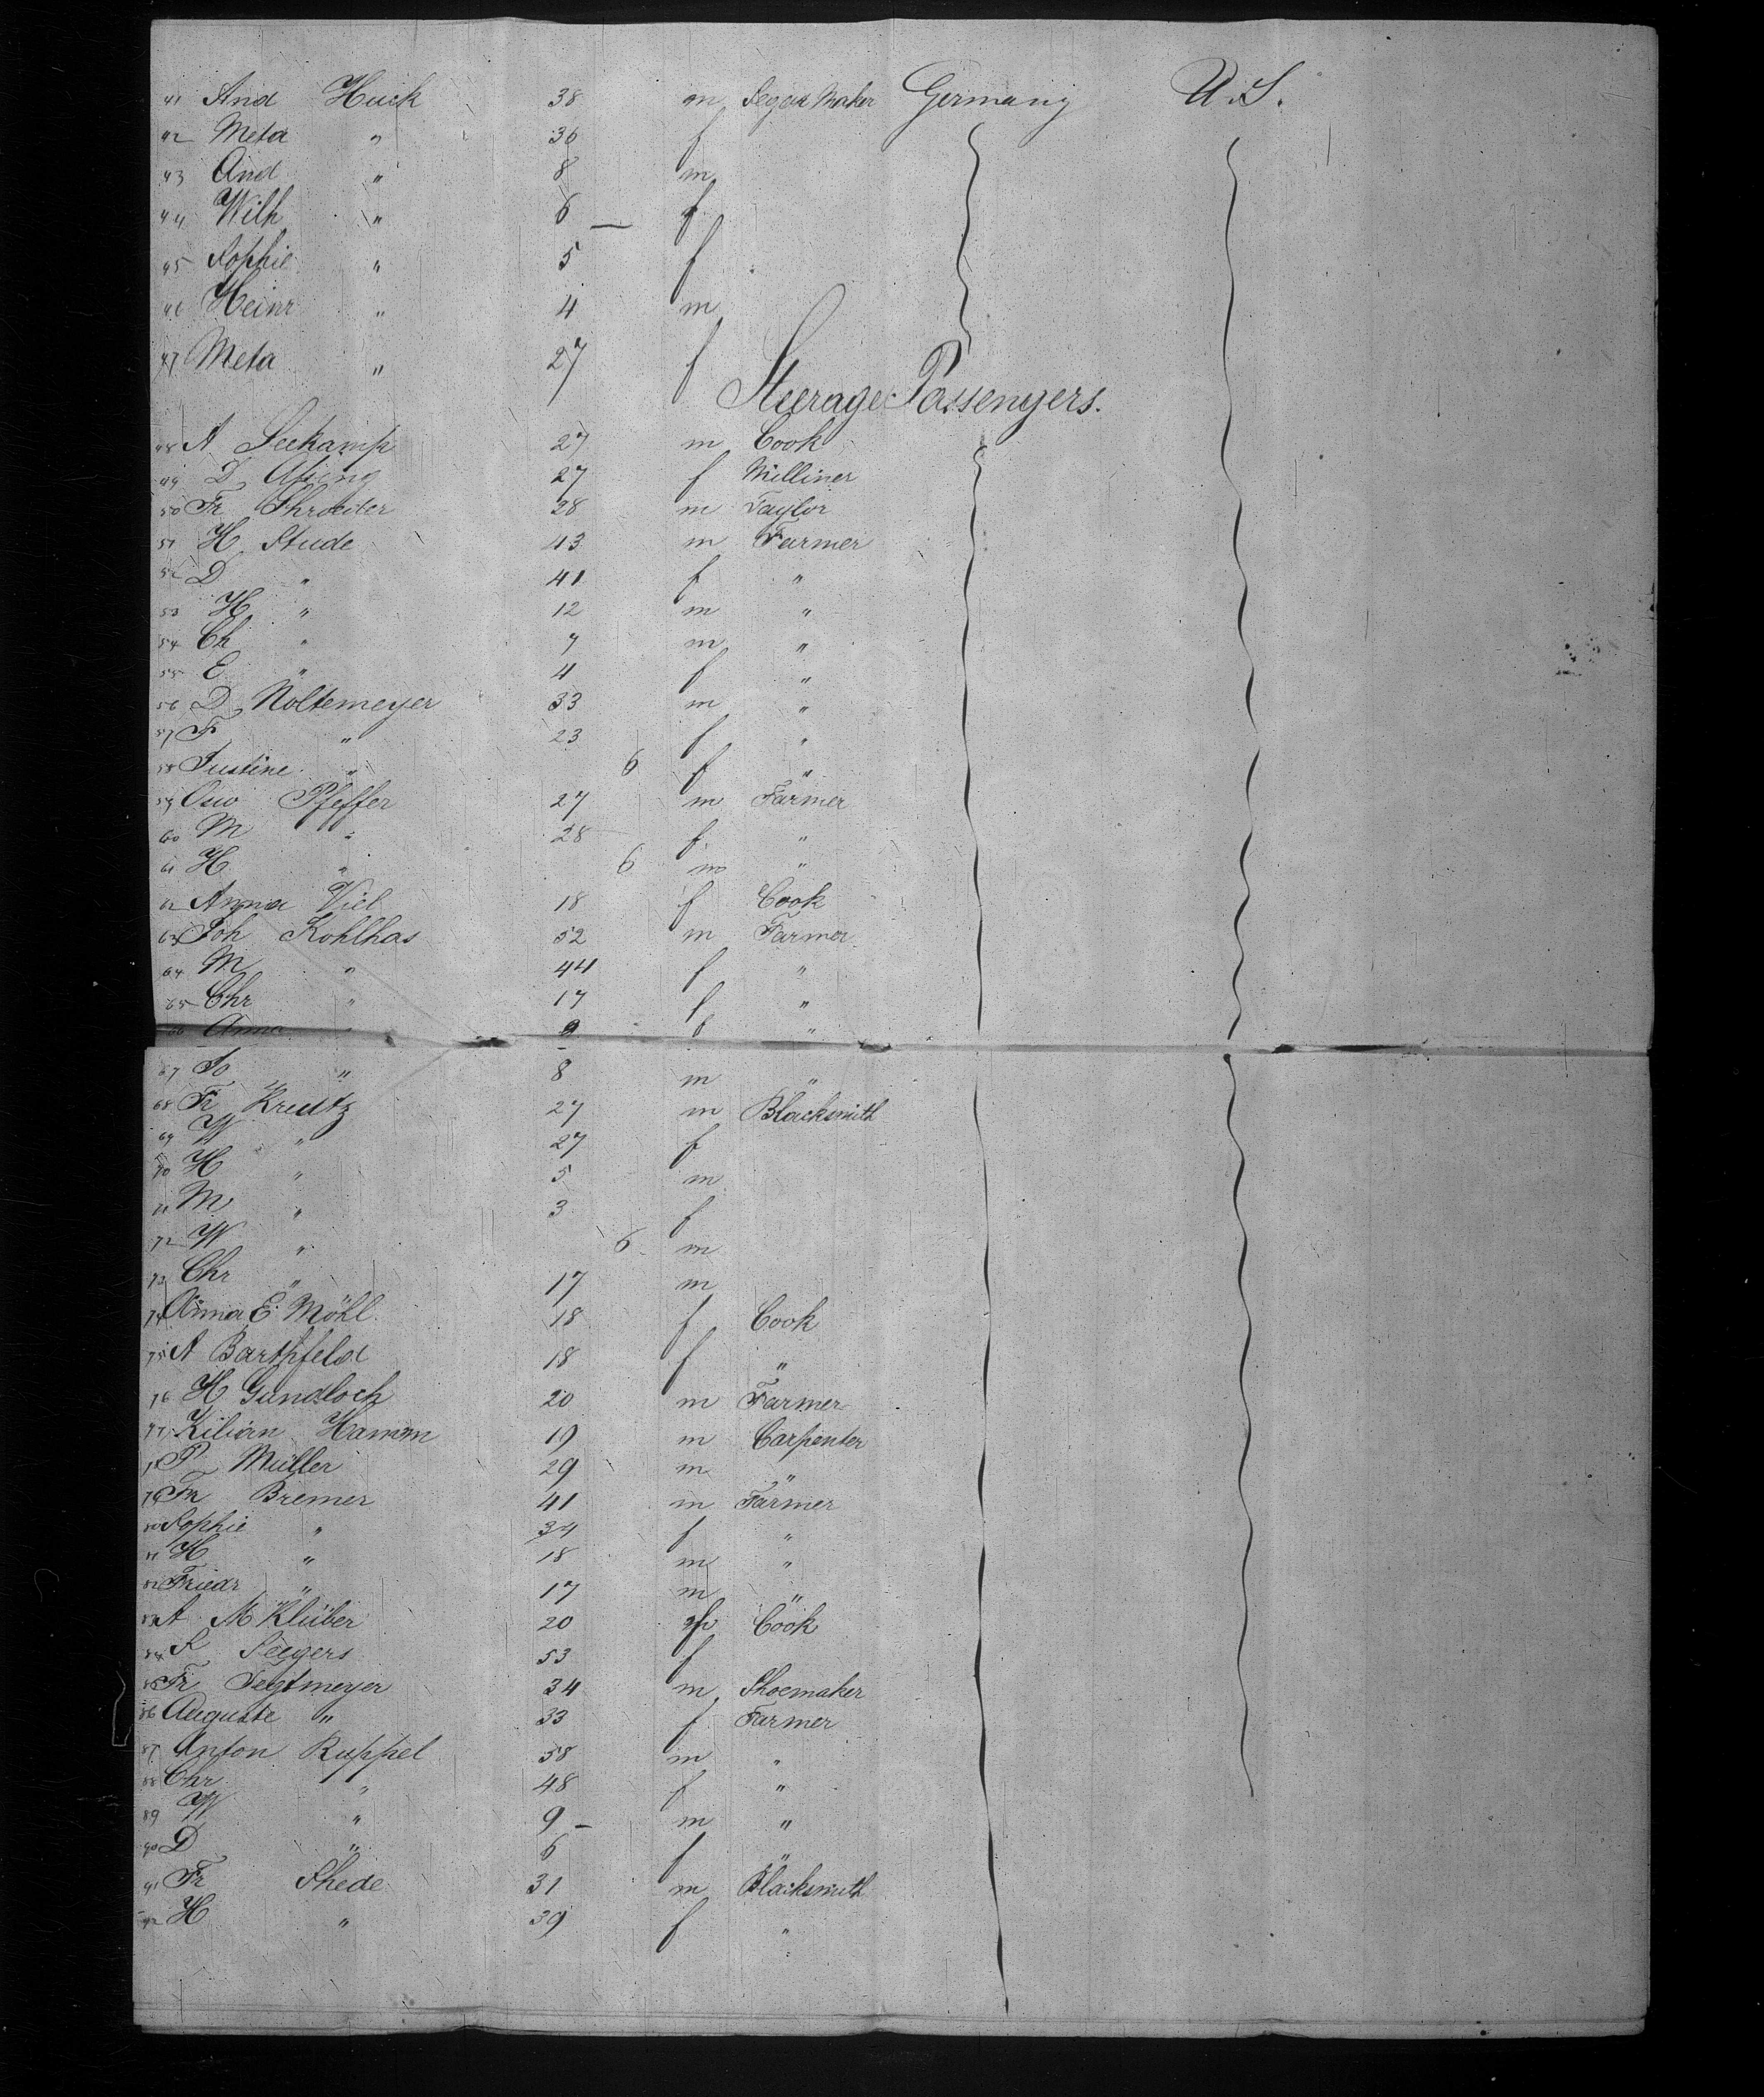 41 And Huck 38 m Segar Maker Germany U.S.
42 Meta " 36 f
43 And " 8 m
44 Wilh " 6 — f
45 Sophie " 5 f
46 Heinr " 4 m
47 Meta " 27 f
Steerage Passengers.
48 A Seekamp 27 m Cook
49 D 27 f Milliner
50 Fr Shroeder 28 m Taylor
51 H Stude 43 m Farmer
52 D " 41 f "
53 H " 12 m "
54 Ch " 7 m "
55 E " 4 f "
56 D Noltemeyer 33 m "
57 F " 23 f "
58 Justine " 6 f "
59 Osw Pfeffer 27 m Farmer
60 M " 28 f "
61 H " 6 m "
62 Anna Viel 18 f Cook
63 Joh Kohlhas 52 m Farmer
64 M " 44 f "
65 Chr " 17 f "
66 Anna " 9 f "
67 Jo " 8 m "
68 Fr Kreutz 27 m Blacksmith
69 W " 27 f
70 H " 5 m
71 M " 3 f
72 W " 6 m
73 Chr " 17 m
74 Anna E Möhl 18 f Cook
75 A Barthfeld 18 f "
76 H Gundloch 20 m Farmer
77 Kilian Hamm 19 m Carpenter
78 P Müller 29 m "
79 Fr Bremer 41 m Farmer
80 Sophie " 34 f "
81 H " 18 m "
82 Friedr " 17 m "
83 A M Klüber 20 f Cook
84 S Seegers 53 f
85 Fr Tegtmeyer 34 m Shoemaker
86 Auguste " 33 f Farmer
87 Anton Ruppel 58 m "
88 Chr " 48 f "
89 W " 9 — m "
90 D " 6 f "
91 Fr Shede 31 m Blacksmith
92 H " 39 f "